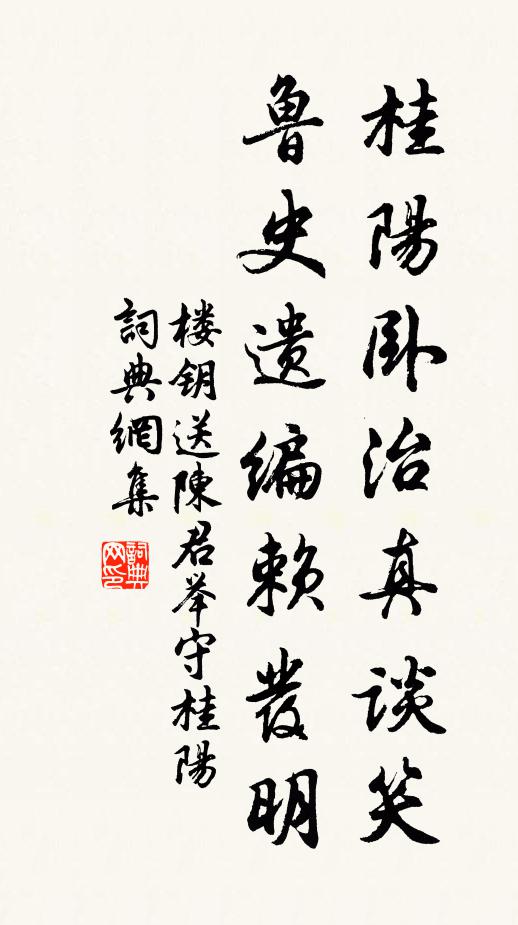 桂陽卧治真談笑
魯史遺編賴發明
楼钥送陳君举守桂陽
詞典網集
詞典网印